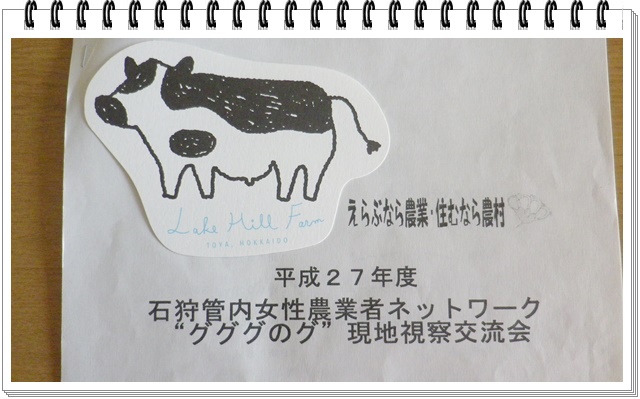 Lake Hill Farm
TOYA, HOKKAIDO
えらぶなら農業・住むなら農村
平成２７年度
石狩管内女性農業者ネットワーク
“グググのグ”現地視察交流会